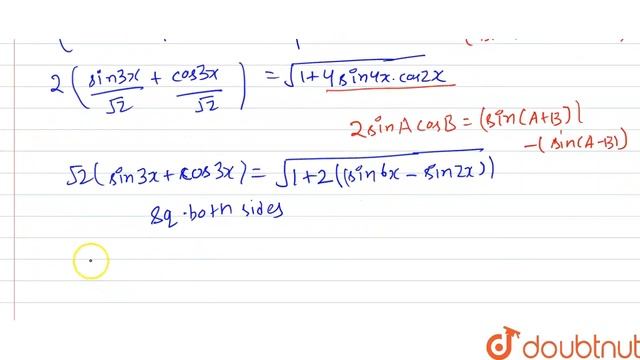 2 ( sin3x/√2 + cos3x/√2 ) = √1+4sin4x.cos2x
2sinAcosB = (sin(A+B))
-(sin(A-B))
√2(sin3x+cos3x) = √1+2((sin6x - sin2x))
sq. both sides
doubtnut